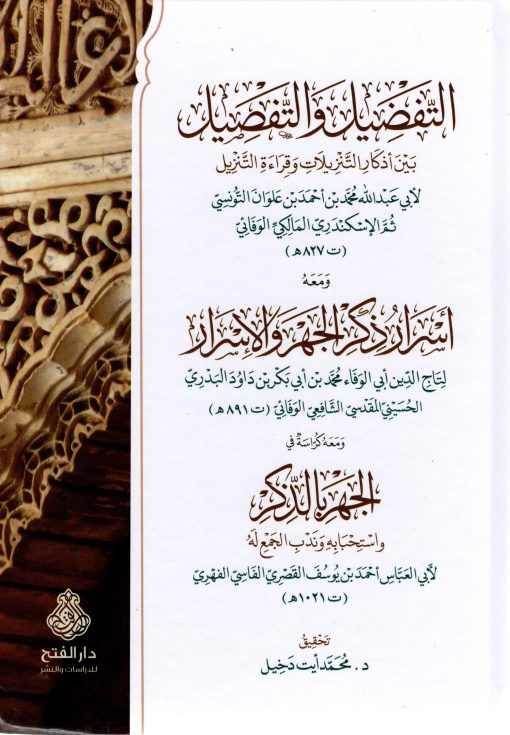 التَّفْضِيل وَالتَّفْصِيل
بَيْنَ أَذْكَارِ التَّنْزِيلَاتِ وَقِرَاءَةِ التَّنْزِيل
لأبي عَبْدِ الله مُحَمَّد بْن أَحْمَد بْن عَلوَان التُّونُسِيّ
ثُمَّ الإسْكَنْدَرِيّ المَالِكِيّ الوَفَائِيّ
(ت ٨٢٧هـ)
وَمَعَهُ
أَسْرَارُ ذِكْرِ الجَهْرِ وَالإِسْرَار
لِتَاجِ الدِّين أبي الوَفَاء مُحَمَّد بْن أَبي بَكْر بْن دَاوُدَ البَدْرِيّ
الحُسَيْنِيّ المَقْدسِيّ الشَّافِعِيّ الوَفَائِيّ (ت ٨٩١هـ)
وَمَعَهُ كُرَّاسَةٌ في
الجَهْرِ بِالذِّكْرِ
وَاسْتِحْبَابِهِ وَنَدْبِ الجَمْعِ لَهُ
لأَبِي العَبَّاس أَحْمَد بْن يُوسُفَ القَصْرِيّ الفَاسِيّ الفِهْرِيّ
(ت ١٠٢١هـ)
تَحْقِيقُ
د. مُحَمَّد أَيت دَخِيل
دار الفتح
للدراسات والنشر